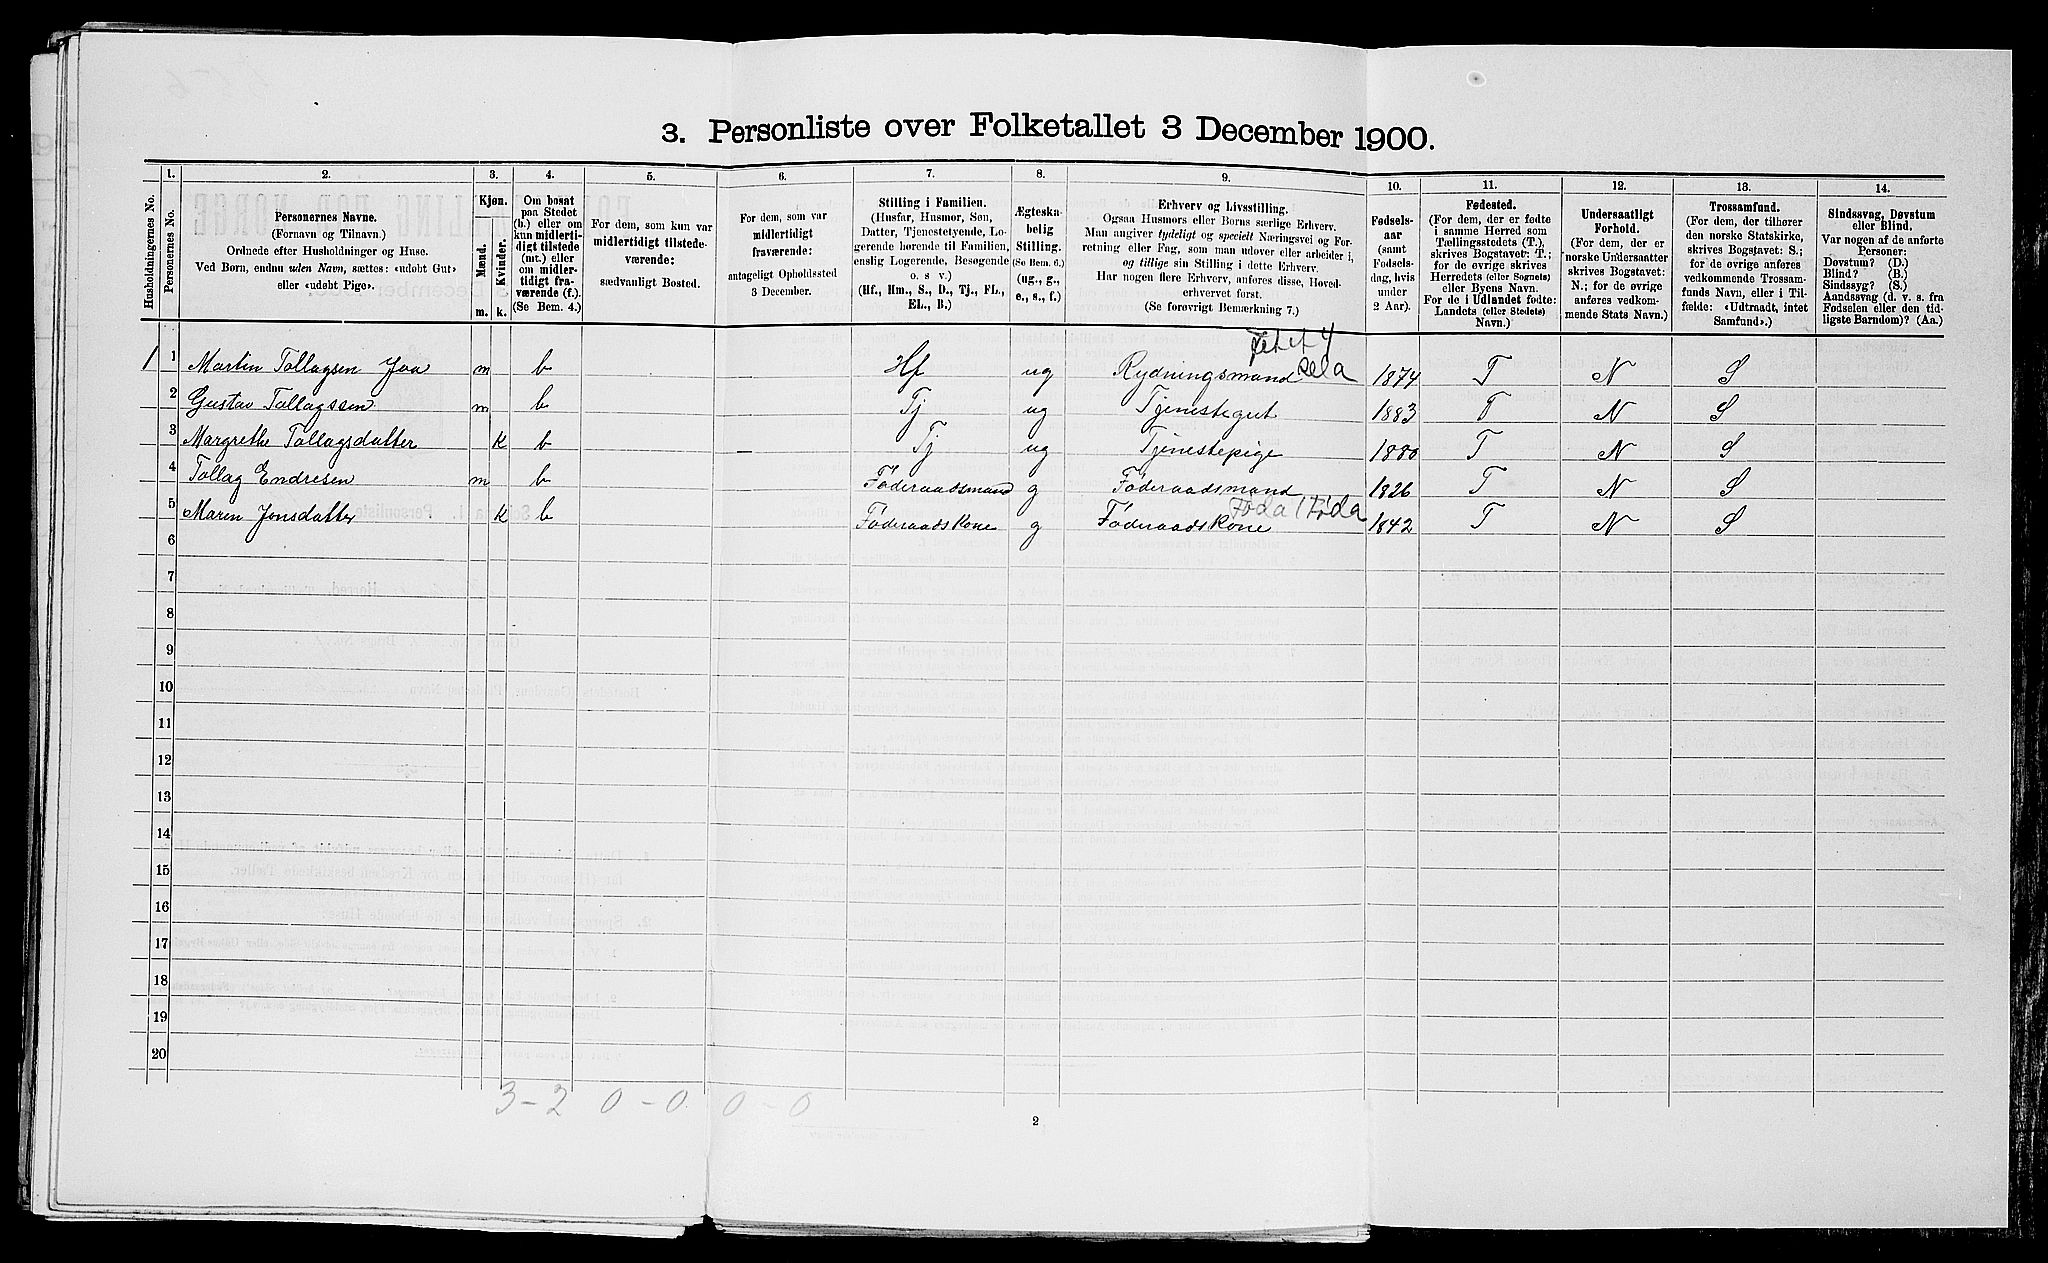 3. Personliste over Folketallet 3 December 1900.
Husholdningernes No.
1.
Personernes No.
2.
Personernes Navne.
(Fornavn og Tilnavn.)
Ordnede efter Husholdninger og Huse.
Ved Børn, endnu uden Navn, sættes: «udøbt Gut»
eller «udøbt Pige».
3.
Kjøn.
Mænd.
Kvinder.
m. k.
4.
Om bosat
paa Stedet
(b.) eller om
kun midlerti-
digt tilstede
(mt.) eller
om midler-
tidigt fra-
værende (f.).
(Se Bem. 4.)
5.
For dem, som kun var
midlertidigt tilstede-
værende:
sædvanligt Bosted.
6.
For dem, som var
midlertidigt
fraværende:
antageligt Opholdssted
3 December.
7.
Stilling i Familien.
(Husfar, Husmor, Søn,
Datter, Tjenestetyende, Lo-
gerende hørende til Familien,
enslig Logerende, Besøgende
o. s. v.)
(Hf., Hm., S., D., Tj., FL.,
EL., B.)
8.
Ægteska-
belig
Stilling.
(Se Bem. 6.)
(ug., g.,
e., s., f.)
9.
Erhverv og Livsstilling.
Ogsaa Husmors eller Børns særlige Erhverv.
Man angiver tydeligt og specielt Næringsvei og For-
retning eller Fag, som man udøver eller arbeider i,
og tillige sin Stilling i dette Erhverv.
Har nogen flere Erhverv, anføres disse, Hoved-
erhvervet først.
(Se forøvrigt Bemærkning 7.)
10.
Fødsels-
aar
(samt
Fødsels-
dag, hvis
under
2 Aar).
11.
Fødested.
(For dem, der er fødte
i samme Herred som
Tællingsstedets (T.),
skrives Bogstavet: T.;
for de øvrige skrives
Herredets (eller Sognets)
eller Byens Navn.
For de i Udlandet fødte:
Landets (eller Stedets)
Navn.)
12.
Undersaatligt
Forhold.
(For dem, der er
norske Undersaatter
skrives Bogstavet:
N.; for de øvrige
anføres vedkom-
mende Stats Navn.)
13.
Trossamfund.
(For dem, der tilhører
den norske Statskirke,
skrives Bogstavet: S.;
for de øvrige anføres
vedkommende Trossam-
funds Navn, eller i Til-
fælde: «Udtraadt, intet
Samfund».)
14.
Sindssvag, Døvstum
eller Blind.
Var nogen af de anførte
Personer:
Døvstum? (D.)
Blind? (B.)
Sindssyg? (S.)
Aandssvag (d. v. s. fra
Fødselen eller den tid-
ligste Barndom)? (Aa.)
1 1 Martin Tollagsen Joa m b Hf ug Rydningsmand 1874 T N S
2 Gustav Tollagssen m b Tj ug Tjenestegut 1883 T N S
3 Margrethe Tollagsdatter k b Tj ug Tjenestepige 1880 T N S
4 Tollag Endresen m b Føderaadsmand g Føderaadsmand 1826 T N S
5 Maren Jonsdatter k b Føderaadskone g Føderaadskone 1842 T N S
6
7
8
9
10
11
12
13
14
15
16
17
18
19
20
3 - 2 0 - 0 0 - 0
2